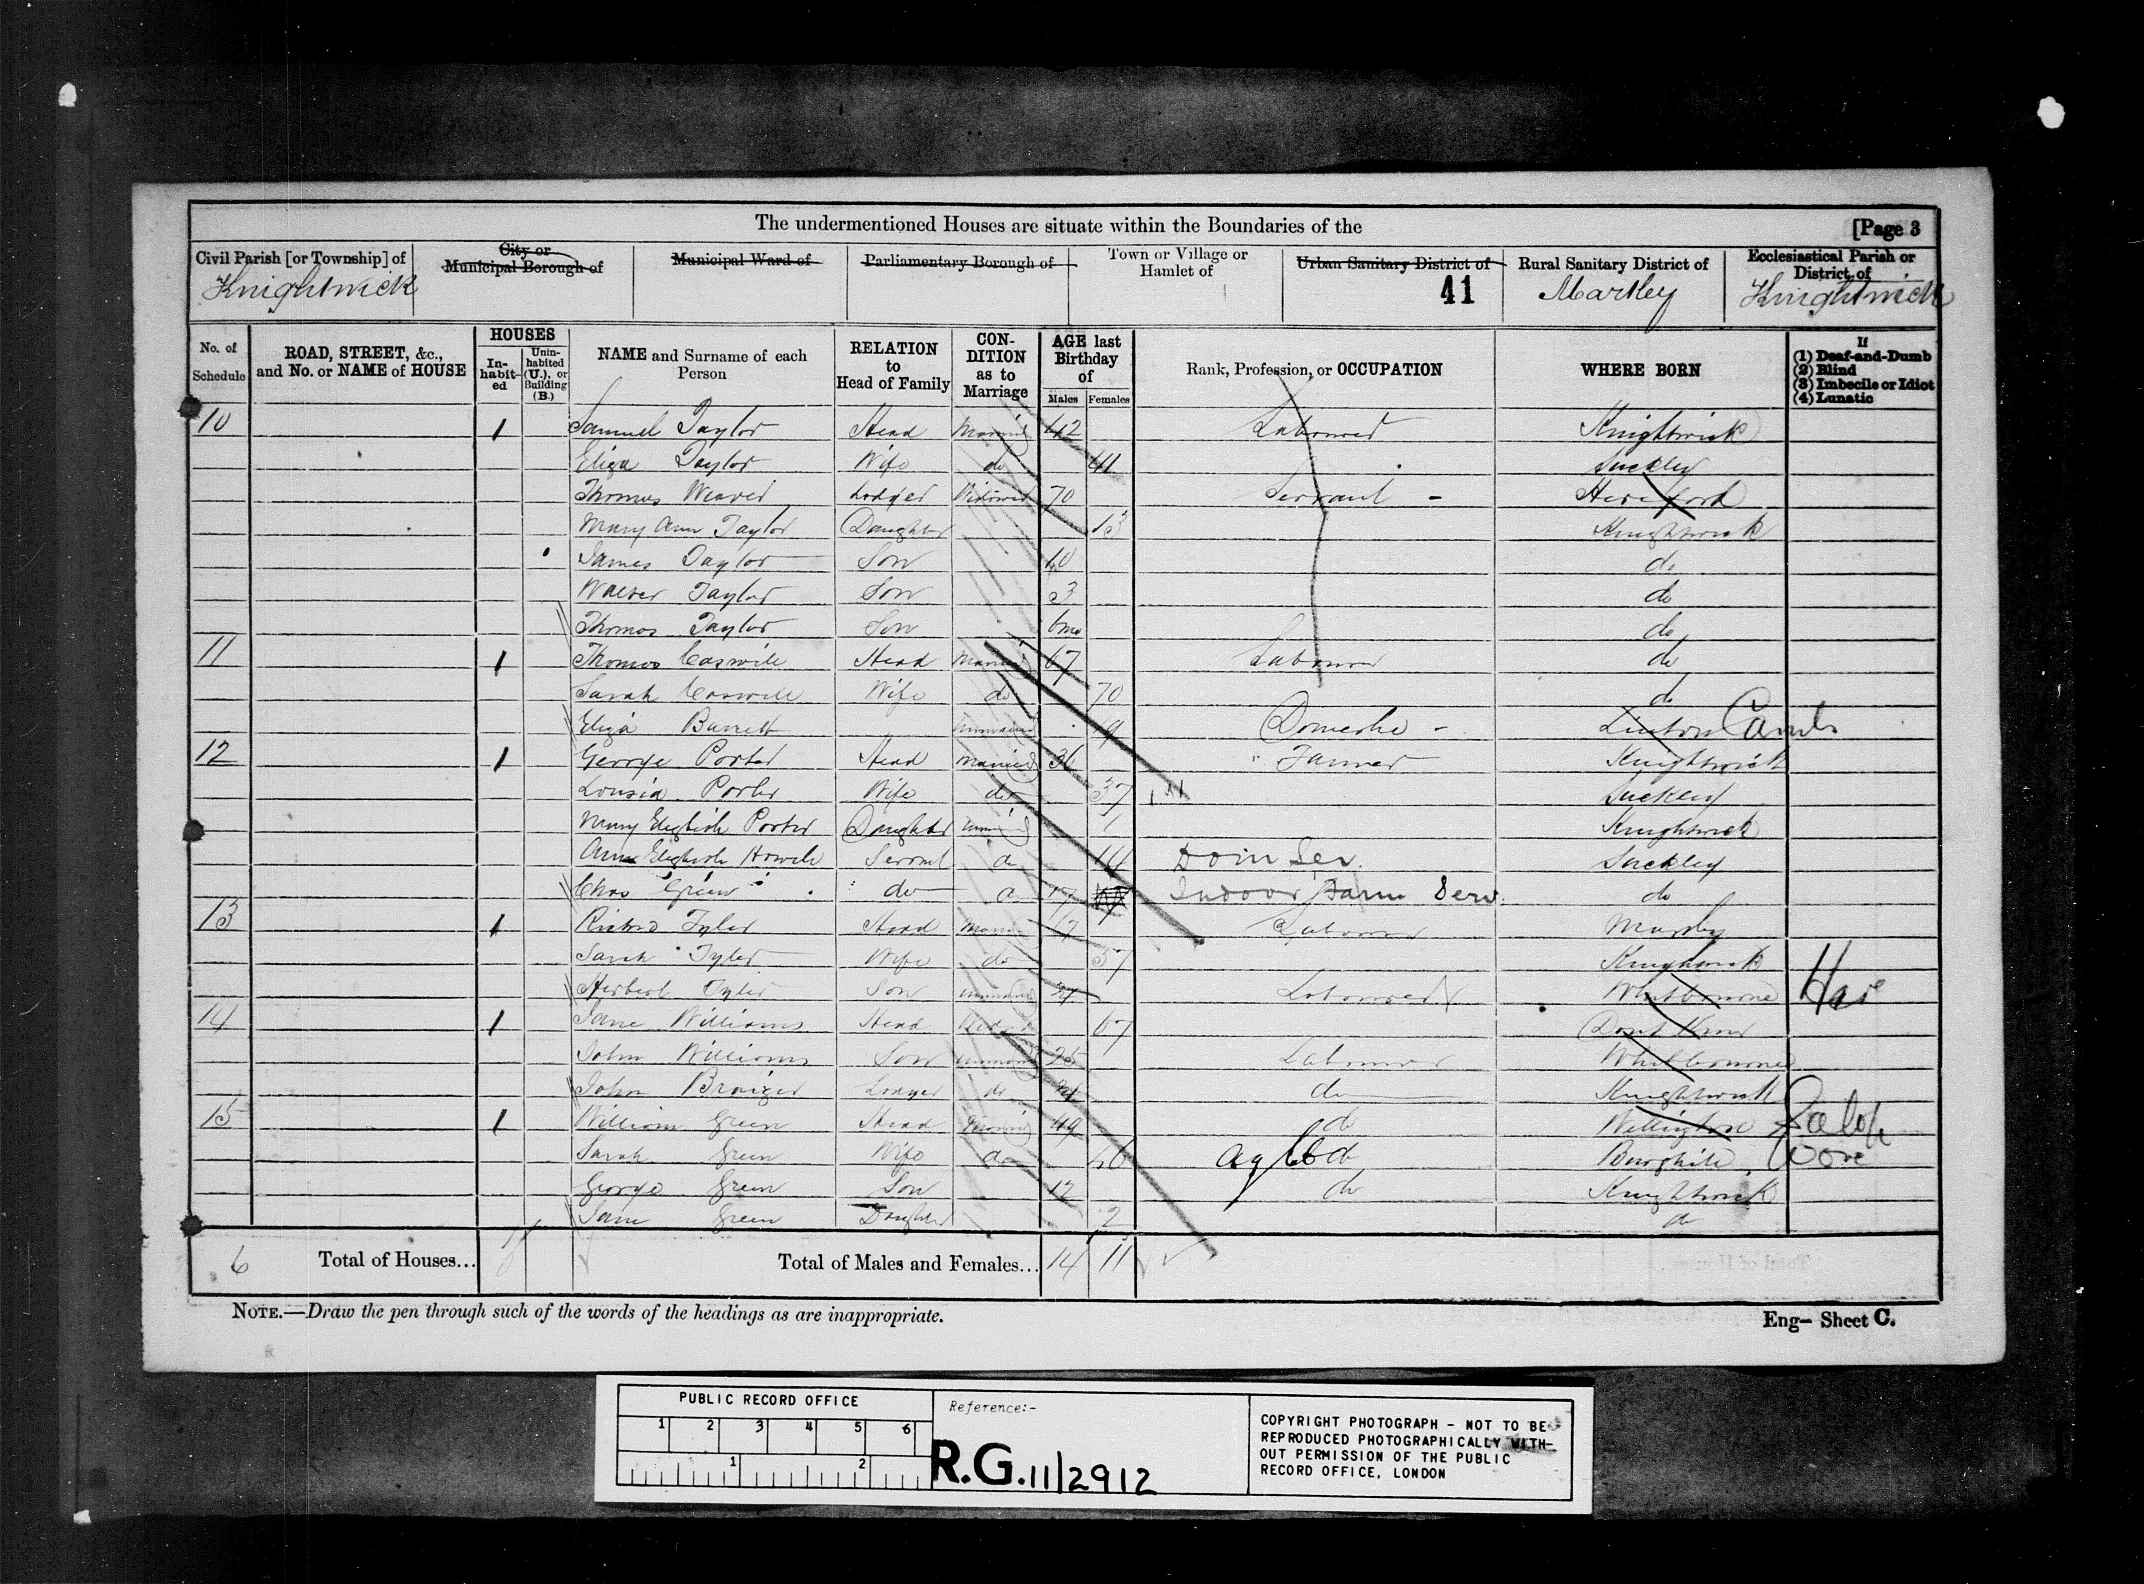 The undermentioned Houses are situate within the Boundaries of the [Page 3
Civil Parish [or Township] of Knightwick
City or Municipal Borough of
Municipal Ward of
Parliamentary Borough of
Town or Village or Hamlet of
Urban Sanitary District of
41
Rural Sanitary District of Martley
Ecclesiastical Parish or District of Knightwick
No. of Schedule
ROAD, STREET, &c., and No. or NAME of HOUSE
HOUSES
In-habit-ed
Unin-habited (U.), or Building (B.)
NAME and Surname of each Person
RELATION to Head of Family
CON-DITION as to Marriage
AGE last Birthday of
Males Females
Rank, Profession, or OCCUPATION
WHERE BORN
If
(1) Deaf-and-Dumb
(2) Blind
(3) Imbecile or Idiot
(4) Lunatic
10 1 Samuel Taylor Head Married 42 Labourer Knightwick
Eliza Taylor Wife do 41 Suckley
Thomas Weaver Lodger Widower 70 Servant - Hereford
Mary Ann Taylor Daughter 13 Knightwick
James Taylor Son 10 do
Walter Taylor Son 3 do
Thomas Taylor Son 6mo do
11 1 Thomas Caswill Head Married 67 Labourer do
Sarah Caswill Wife do 70 do
Eliza Barrett Unmarried 9 Domestic - Linton Camb
12 1 George Porter Head Married 36 Farmer Knightwick
Lousia Porter Wife do 37 Suckley
Mary Elizbith Porter Daughter 1 Knightwick
Ann Elizbith Howell Servant do 14 Dom Ser. Suckley
Chas Green do do 17 Indoor Farm Serv. do
13 1 Richard Tyler Head Labourer Martley
Sarah Tyler Wife do 57 Knightwick
Herbert Tyler Son unmarried Labourer Whitbourne Her
14 1 Jane Williams Head 67 Dont Know
John Williams Son unmarried 25 Labourer Whitbourne
John Lodger do do Knightwick
15 1 William Green Head Married 49 do Wellington Salop
Sarah Green Wife do 46 Ag Lab do Worc
George Green Son 12 do Knightwick
Jane Green Daughter 2 do
6 Total of Houses... Total of Males and Females... 14 11
NOTE.—Draw the pen through such of the words of the headings as are inappropriate.
Eng- Sheet C.
PUBLIC RECORD OFFICE
1 2 3 4 5 6
1 2
Reference:-
R.G.11/2912
COPYRIGHT PHOTOGRAPH - NOT TO BE
REPRODUCED PHOTOGRAPHICALLY WITH-
OUT PERMISSION OF THE PUBLIC
RECORD OFFICE, LONDON